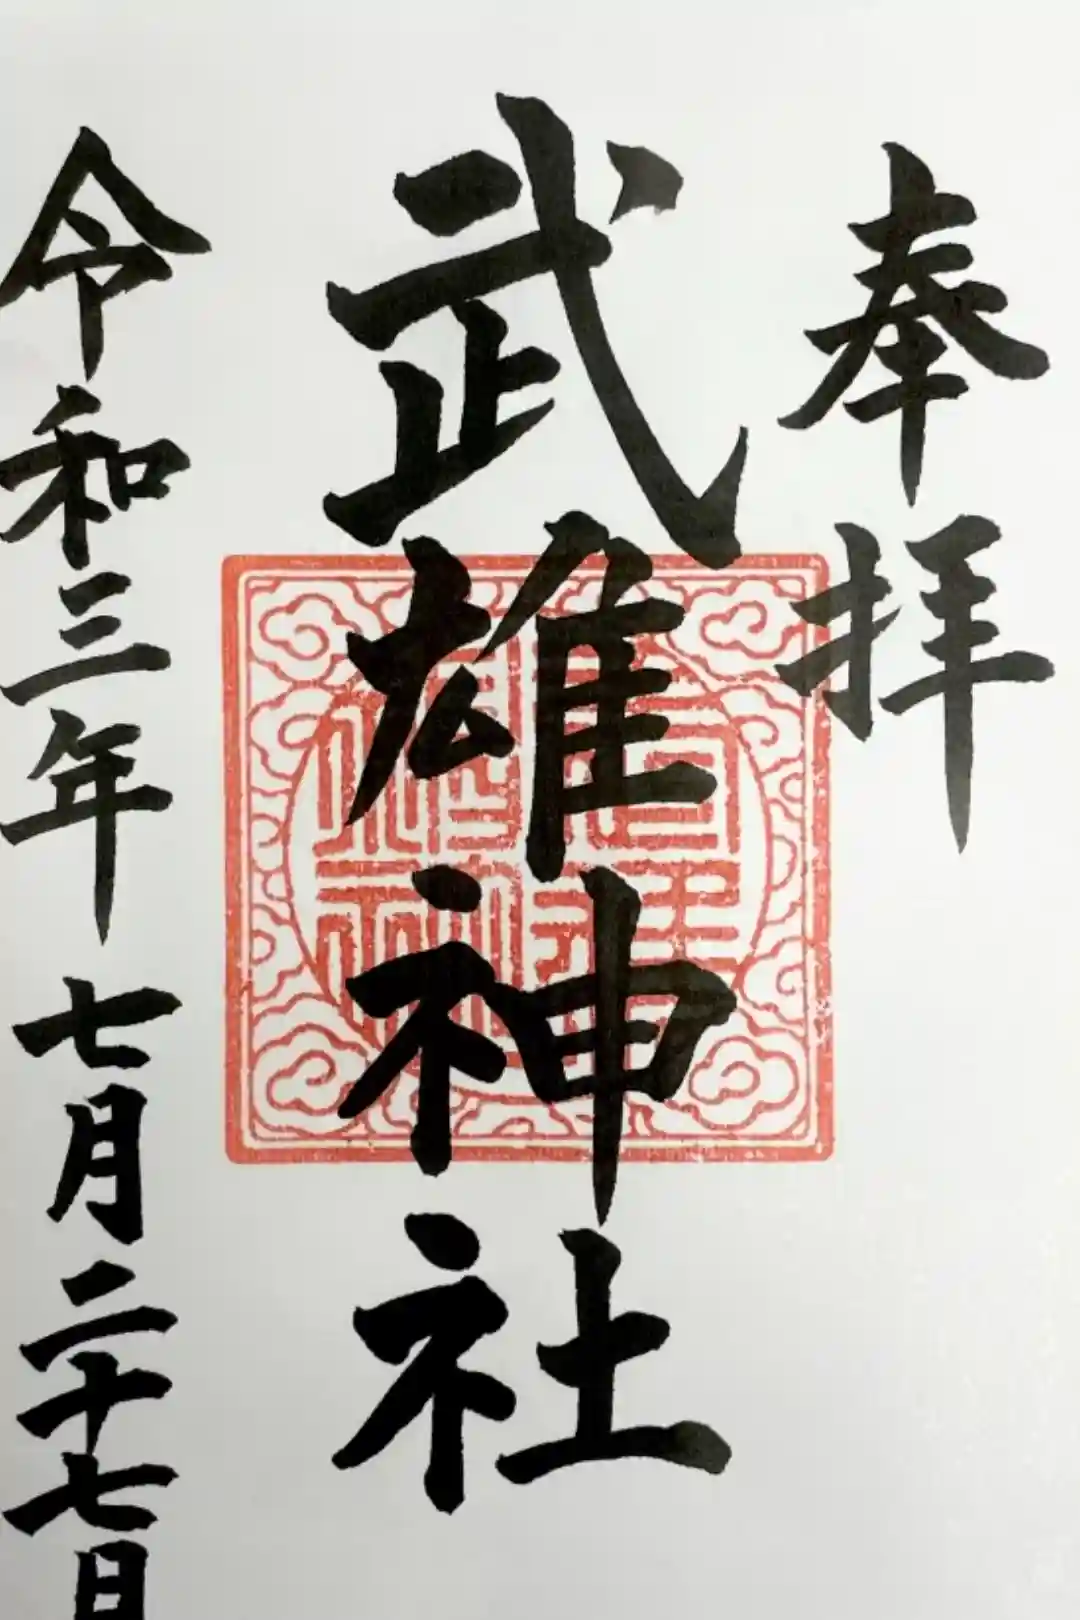 奉拝
武雄神社
令和三年七月二十七日